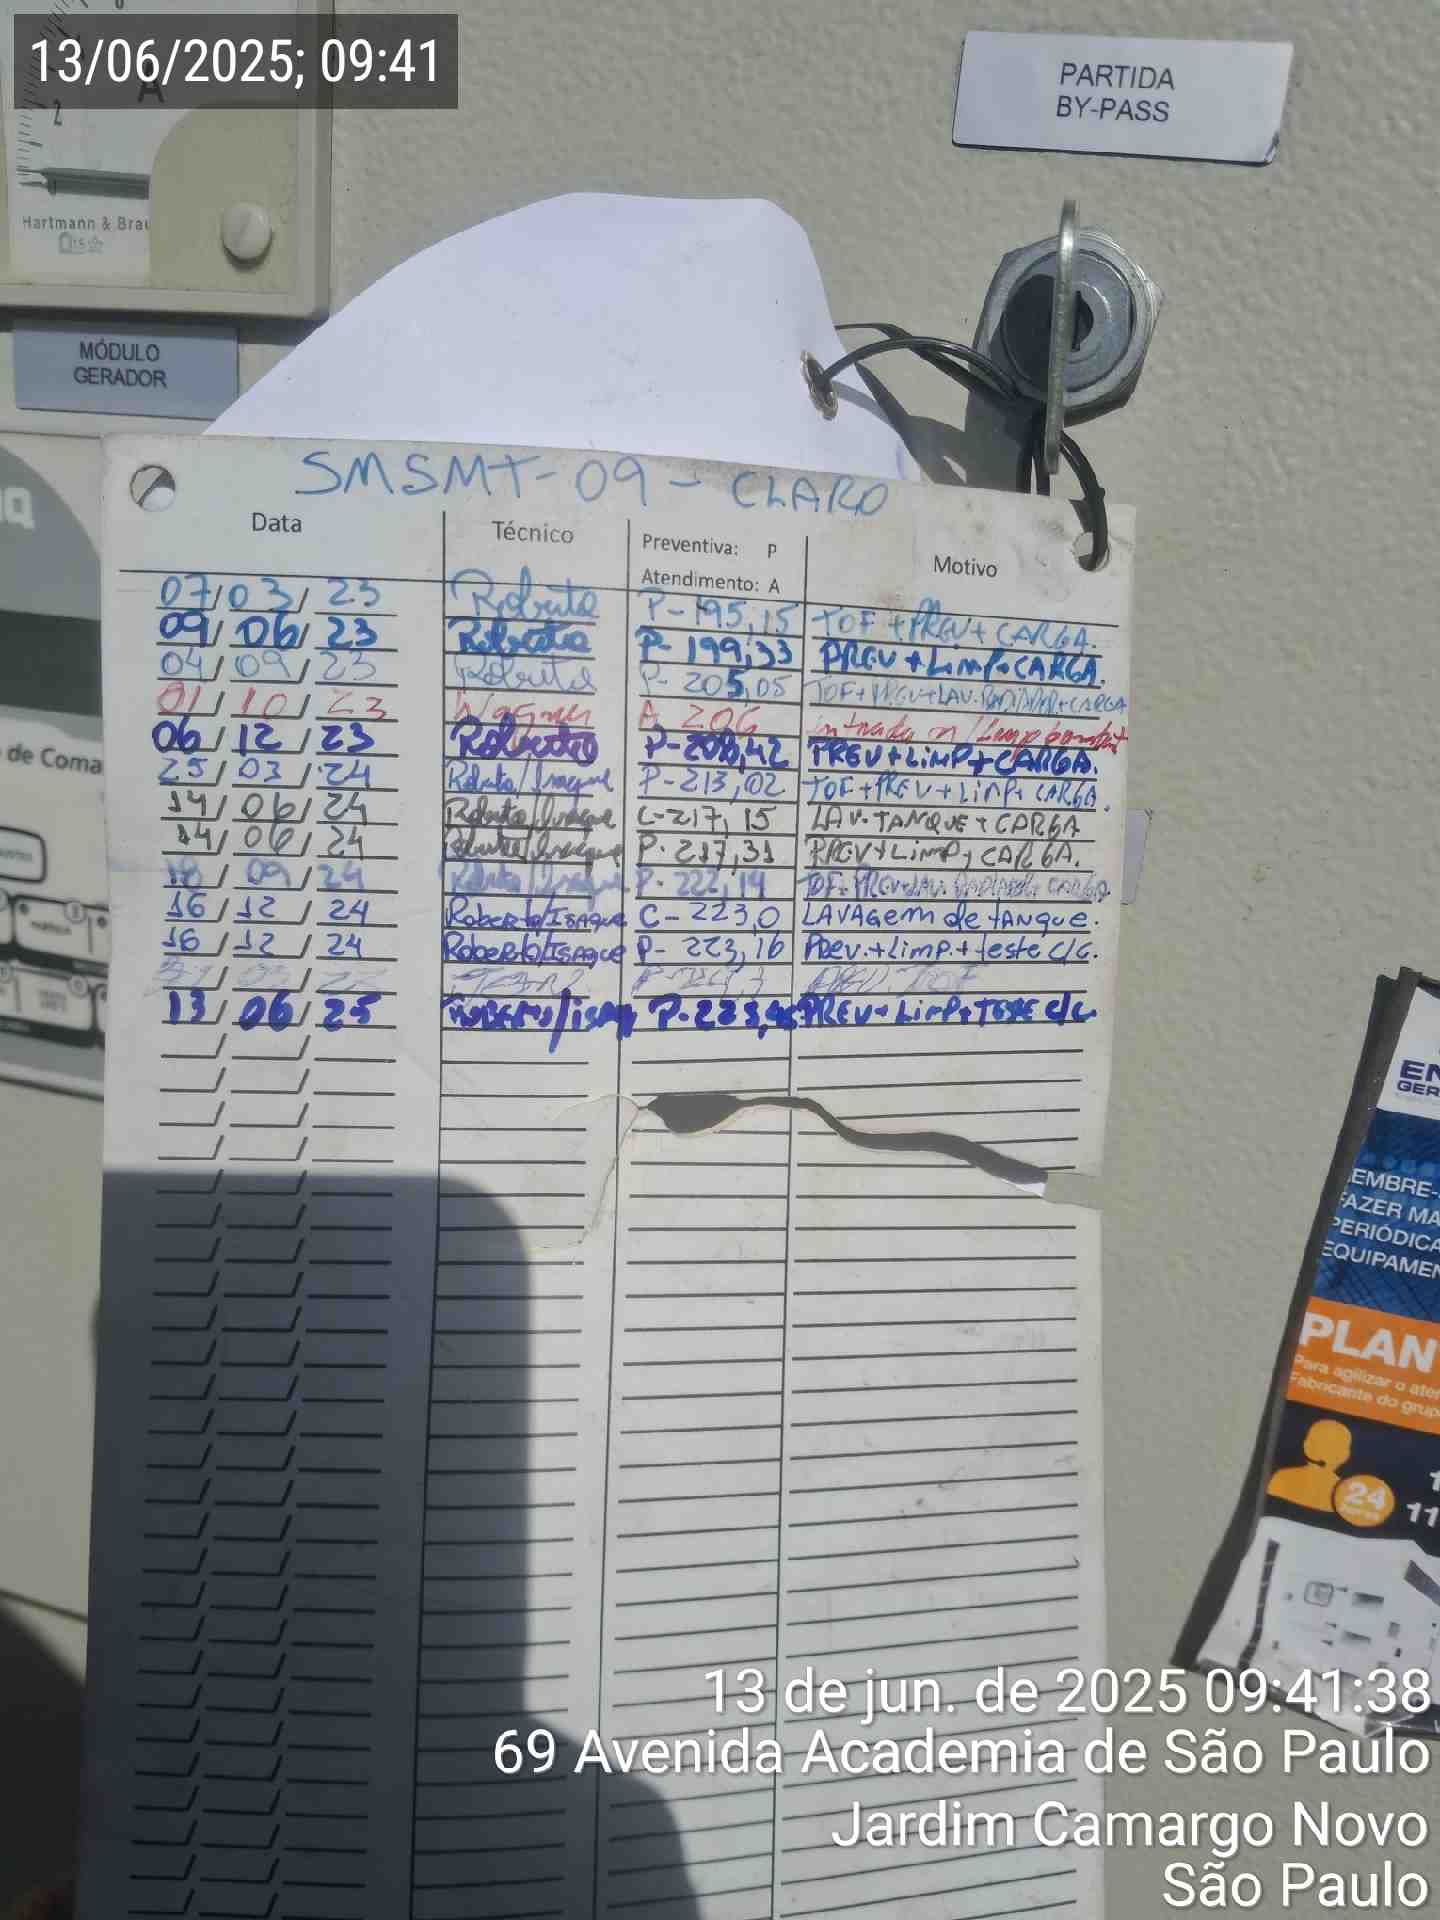 13/06/2025; 09:41
A
2
Hartmann & Brau
PARTIDA
BY-PASS
MÓDULO
GERADOR
de Coma
SMSMT-09 - CLARO
Data Técnico Preventiva: P Motivo
Atendimento: A
07/03/23 Roberto P-195,15 TOF+PREV+CARGA.
09/06/23 Roberto P-199,33 PREV+LIMP+CARGA.
04/09/23 Roberto P-205,05 TOF+PREV+LAV.RADIADOR+CARGA
01/10/23 Wagner A 206
06/12/23 Roberto P-208,42 PREV+LIMP+CARGA.
25/03/24 Roberto/Isaque P-213,02 TOF+PREV+LIMP+CARGA.
14/06/24 Roberto/Isaque C-217,15 LAV.TANQUE+CARGA
14/06/24 Roberto/Isaque P-217,31 PREV+LIMP+CARGA.
18/09/24 Roberto/Isaque P-222,14 TOF+PREV+LAV.RADIADOR+CARGA
16/12/24 Roberto/ISAQUE C-223,0 LAVAGEM de tANQUE.
16/12/24 Roberto/ISAQUE P-223,16 PREV.+LIMP.+teste C/C.
13/06/25 P-223, PREV+LIMP+TESTE C/C
EN
GER
LEMBRE-
FAZER MA
PERIÓDICA
EQUIPAMEN
PLAN
Para agilizar o aten
Fabricante do grup
24
11
13 de jun. de 2025 09:41:38
69 Avenida Academia de São Paulo
Jardim Camargo Novo
São Paulo